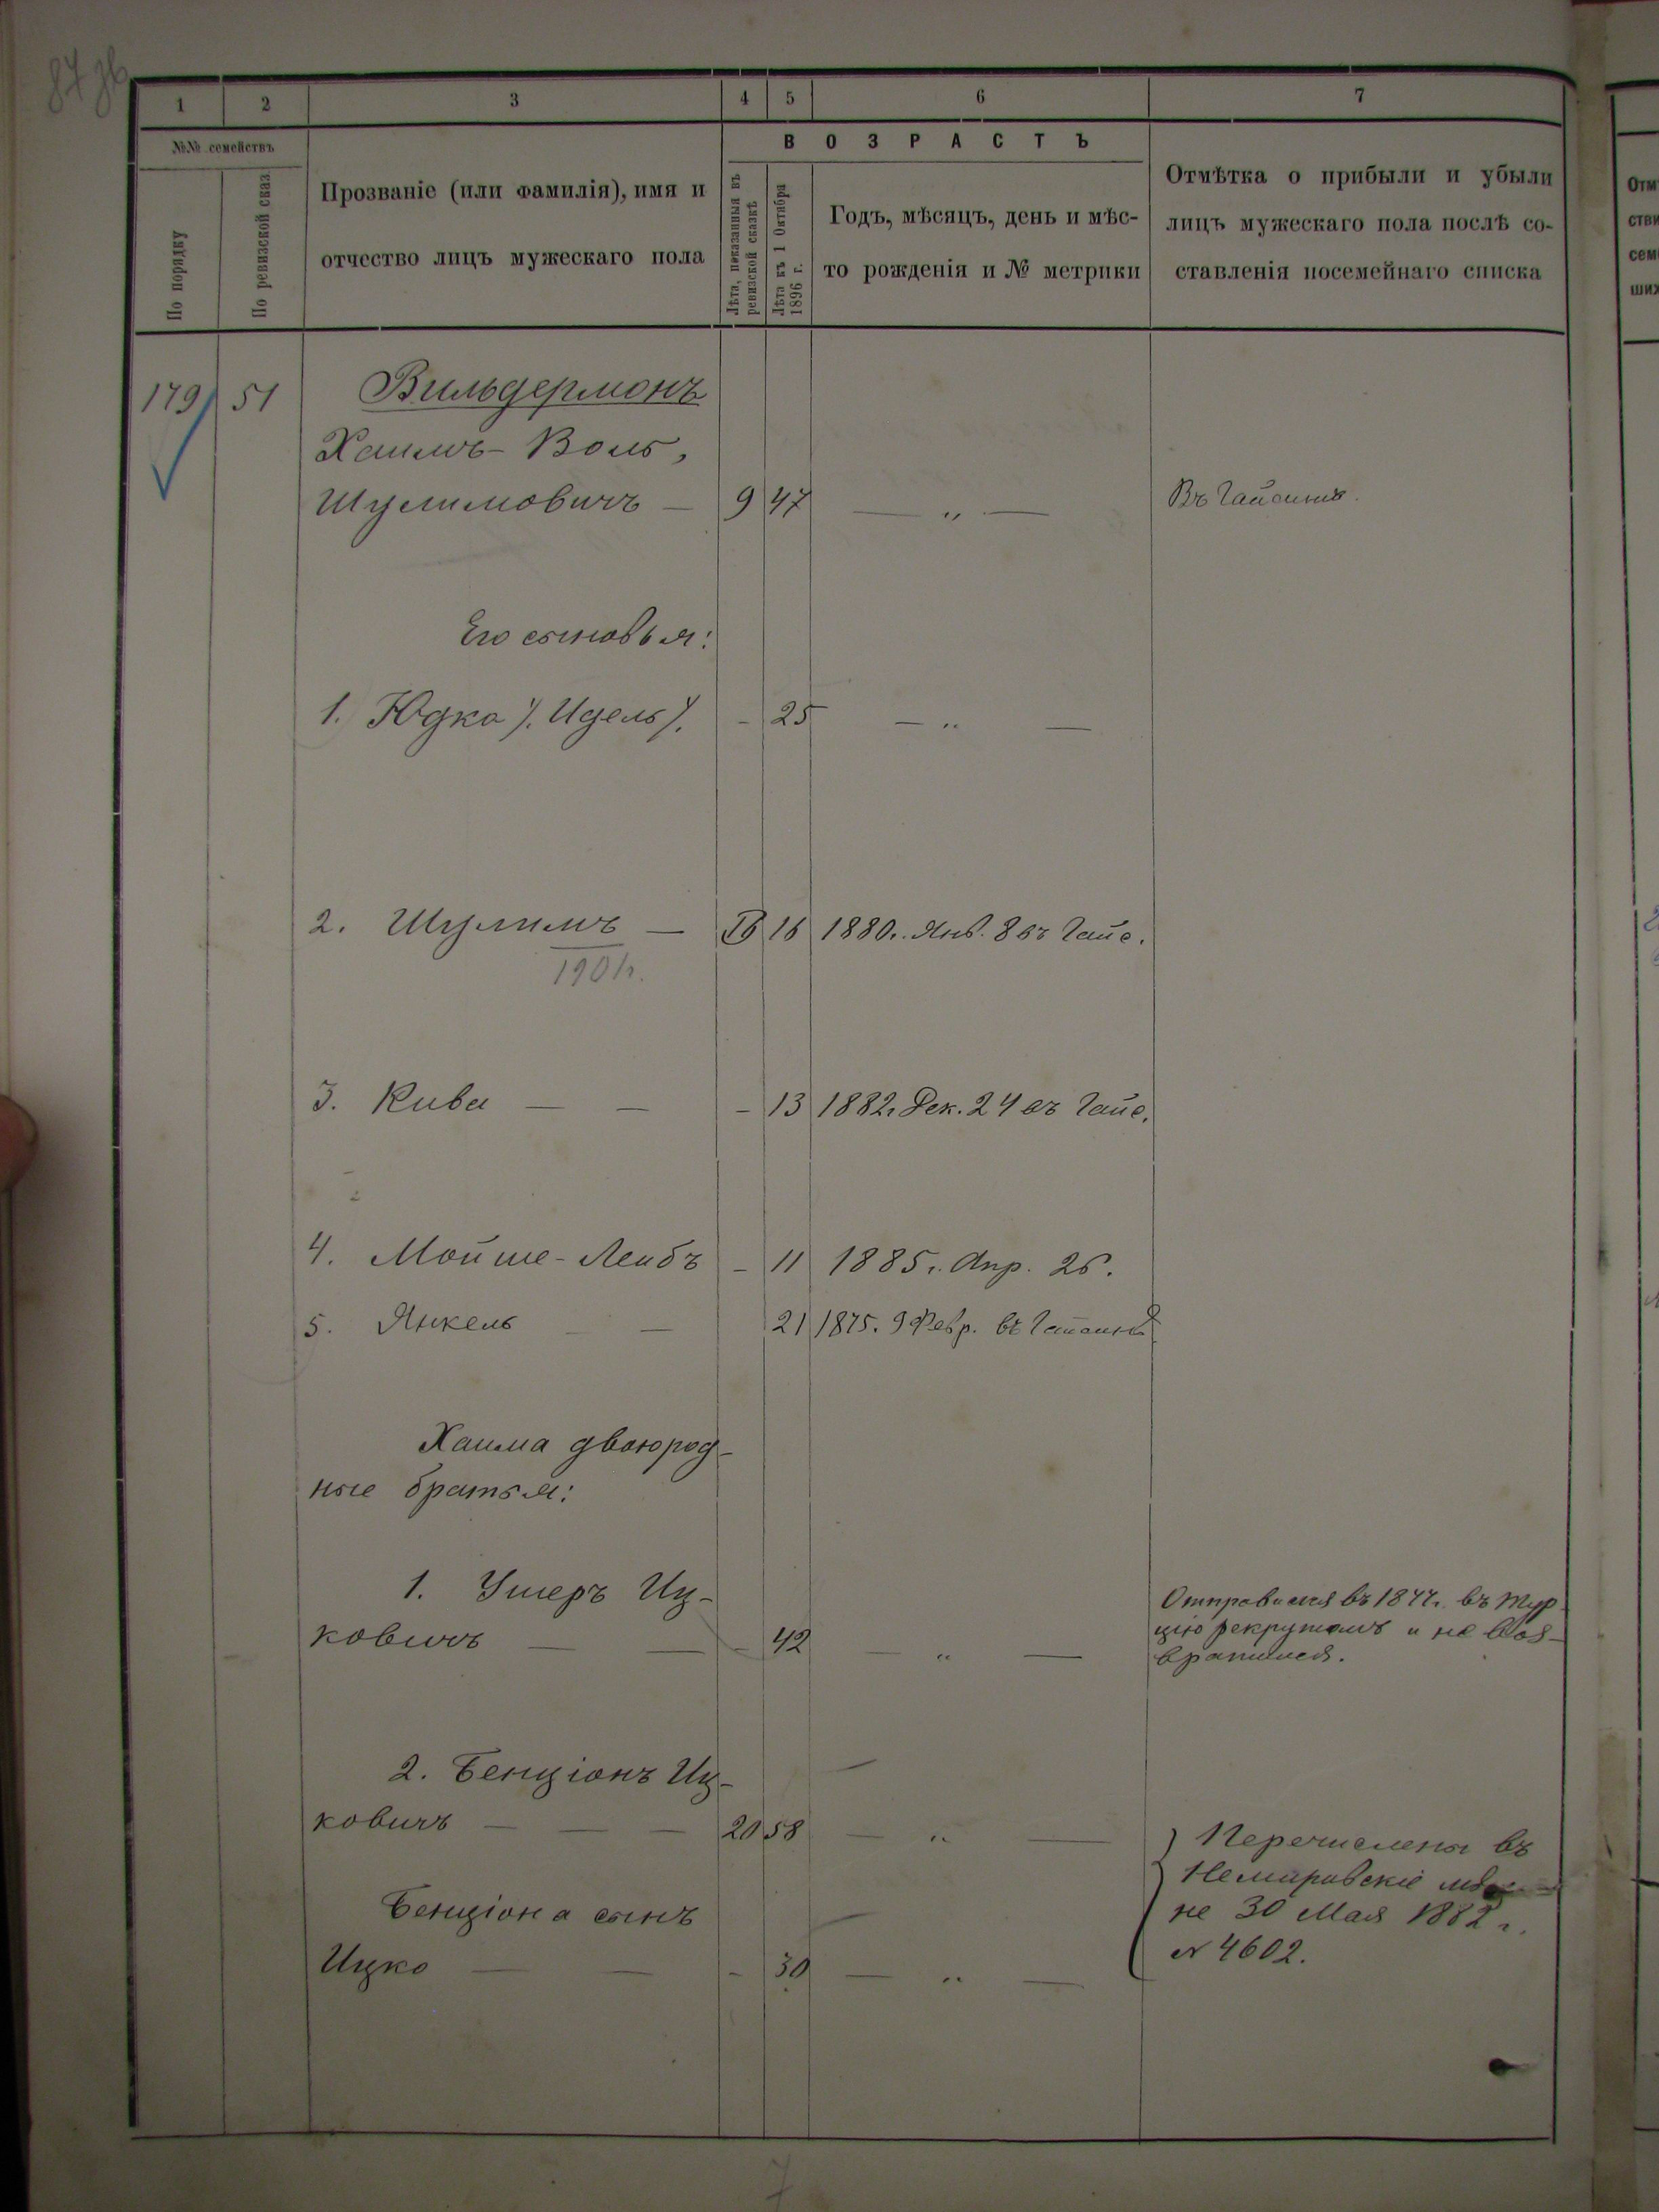 87 зв
1 2 3 4 5 6 7
№№ семействъ
По порядку
По ревизской сказ
Прозваніе (или фамилія), имя и
отчество лицъ мужескаго пола
ВОЗРАСТЪ
Лѣта, показанныя въ
ревизской сказкѣ
Лѣта къ 1 Октября
1896 г.
Годъ, мѣсяцъ, день и мѣс-
то рожденія и № метрики
Отмѣтка о прибыли и убыли
лицъ мужескаго пола послѣ со-
ставленія посемейнаго списка
179 51 Вильдермонъ
Хаимъ-Воль,
Шулимовичъ — 9 47 — „ — Въ Гайсинѣ.
Его сыновья:
1. Юдка /. Идель/. - 25 — „ —
2. Шулимъ — 16 1880г. Янв. 8 въ Гайс.
1901г.
3. Кива — — - 13 1882г. Дек. 24 въ Гайс.
4. Мойше-Лейбъ - 11 1885г. Апр. 26.
5. Янкель — — 21 1875. 9 Февр. въ Гайсинѣ
Хаима двоюрод-
ные братья:
1. Ушеръ Иц-
ковичъ — — - 42 — „ —
Отправился въ 1877г. въ Тур-
цію рекрутомъ и не воз-
вратился.
2. Бенціонъ Иц-
ковичъ — — — 20 58 — „ —
Бенціона сынъ
Ицко — — - 30 — „ —
Перечислены въ
Немировскіе
не 30 Мая 1882 г.
№ 4602.
7